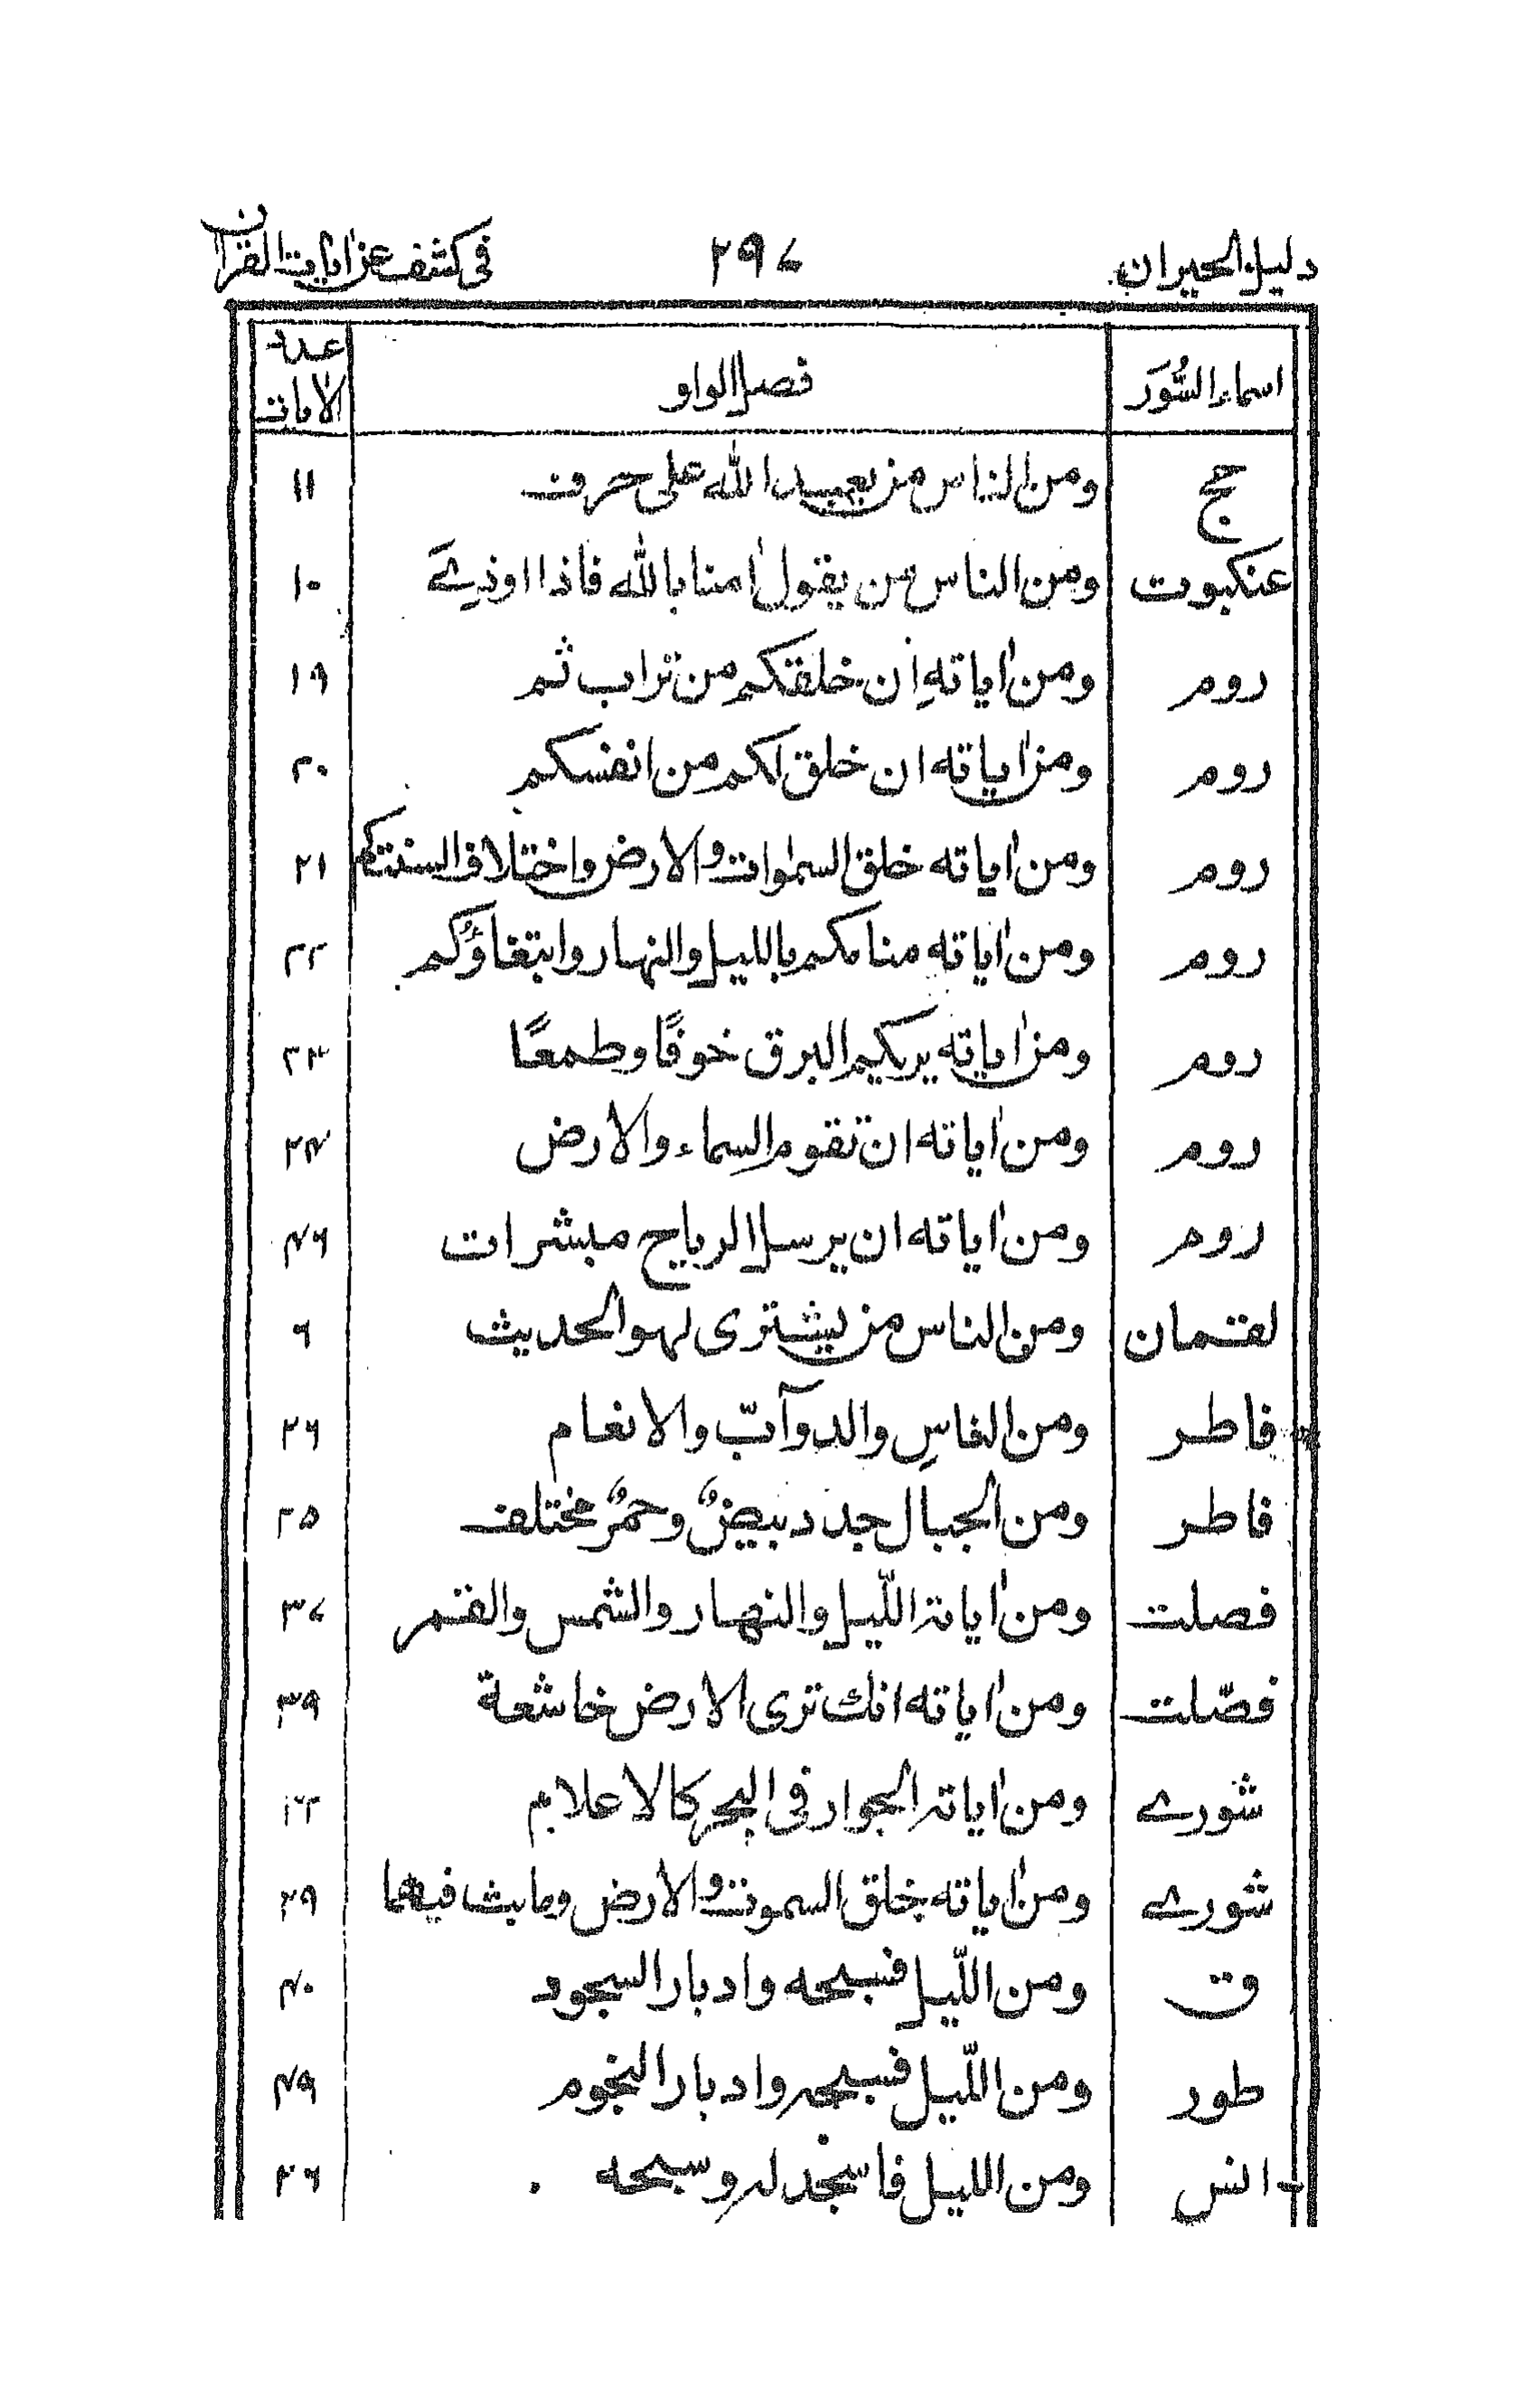 دليل الحيران ٢٩٧ فى كشف عن ايات القران
اسماء السُّوَر فصل الواو عدد الايات
حج ومن الناس من يعبد الله على حرف ١١
عنكبوت ومن الناس من يقول امنا بالله فاذا اوذى ١٠
روم ومن اياته ان خلقكم من تراب ثم ١٩
روم ومن اياته ان خلق لكم من انفسكم ٢٠
روم ومن اياته خلق السموات والارض واختلاف السنتكم ٢١
روم ومن اياته منامكم بالليل والنهار وابتغاؤكم ٢٢
روم ومن اياته يريكم البرق خوفًا وطمعًا ٢٣
روم ومن اياته ان تقوم السماء والارض ٢٤
روم ومن اياته ان يرسل الرياح مبشرات ٤٦
لقمان ومن الناس من يشترى لهو الحديث ٦
فاطر ومن الناسِ والدوآبّ والانعام ٢٦
فاطر ومن الجبال جدد بيضٌ وحمرٌ مختلف ٢٥
فصلت ومن اياته اللّيل والنهار والشمس والقمر ٣٧
فصّلت ومن اياته انك ترى الارض خاشعة ٣٩
شورى ومن اياته الجوار فى البحر كالاعلام
شورى ومن اياته خلق السموت والارض وما بث فيهما ٢٩
ق ومن اللّيل فسبحه وادبار السجود ٤٠
طور ومن اللّيل فسبحه وادبار النجوم ٤٩
ومن الليل فاسجد له وسبحه ٢٦